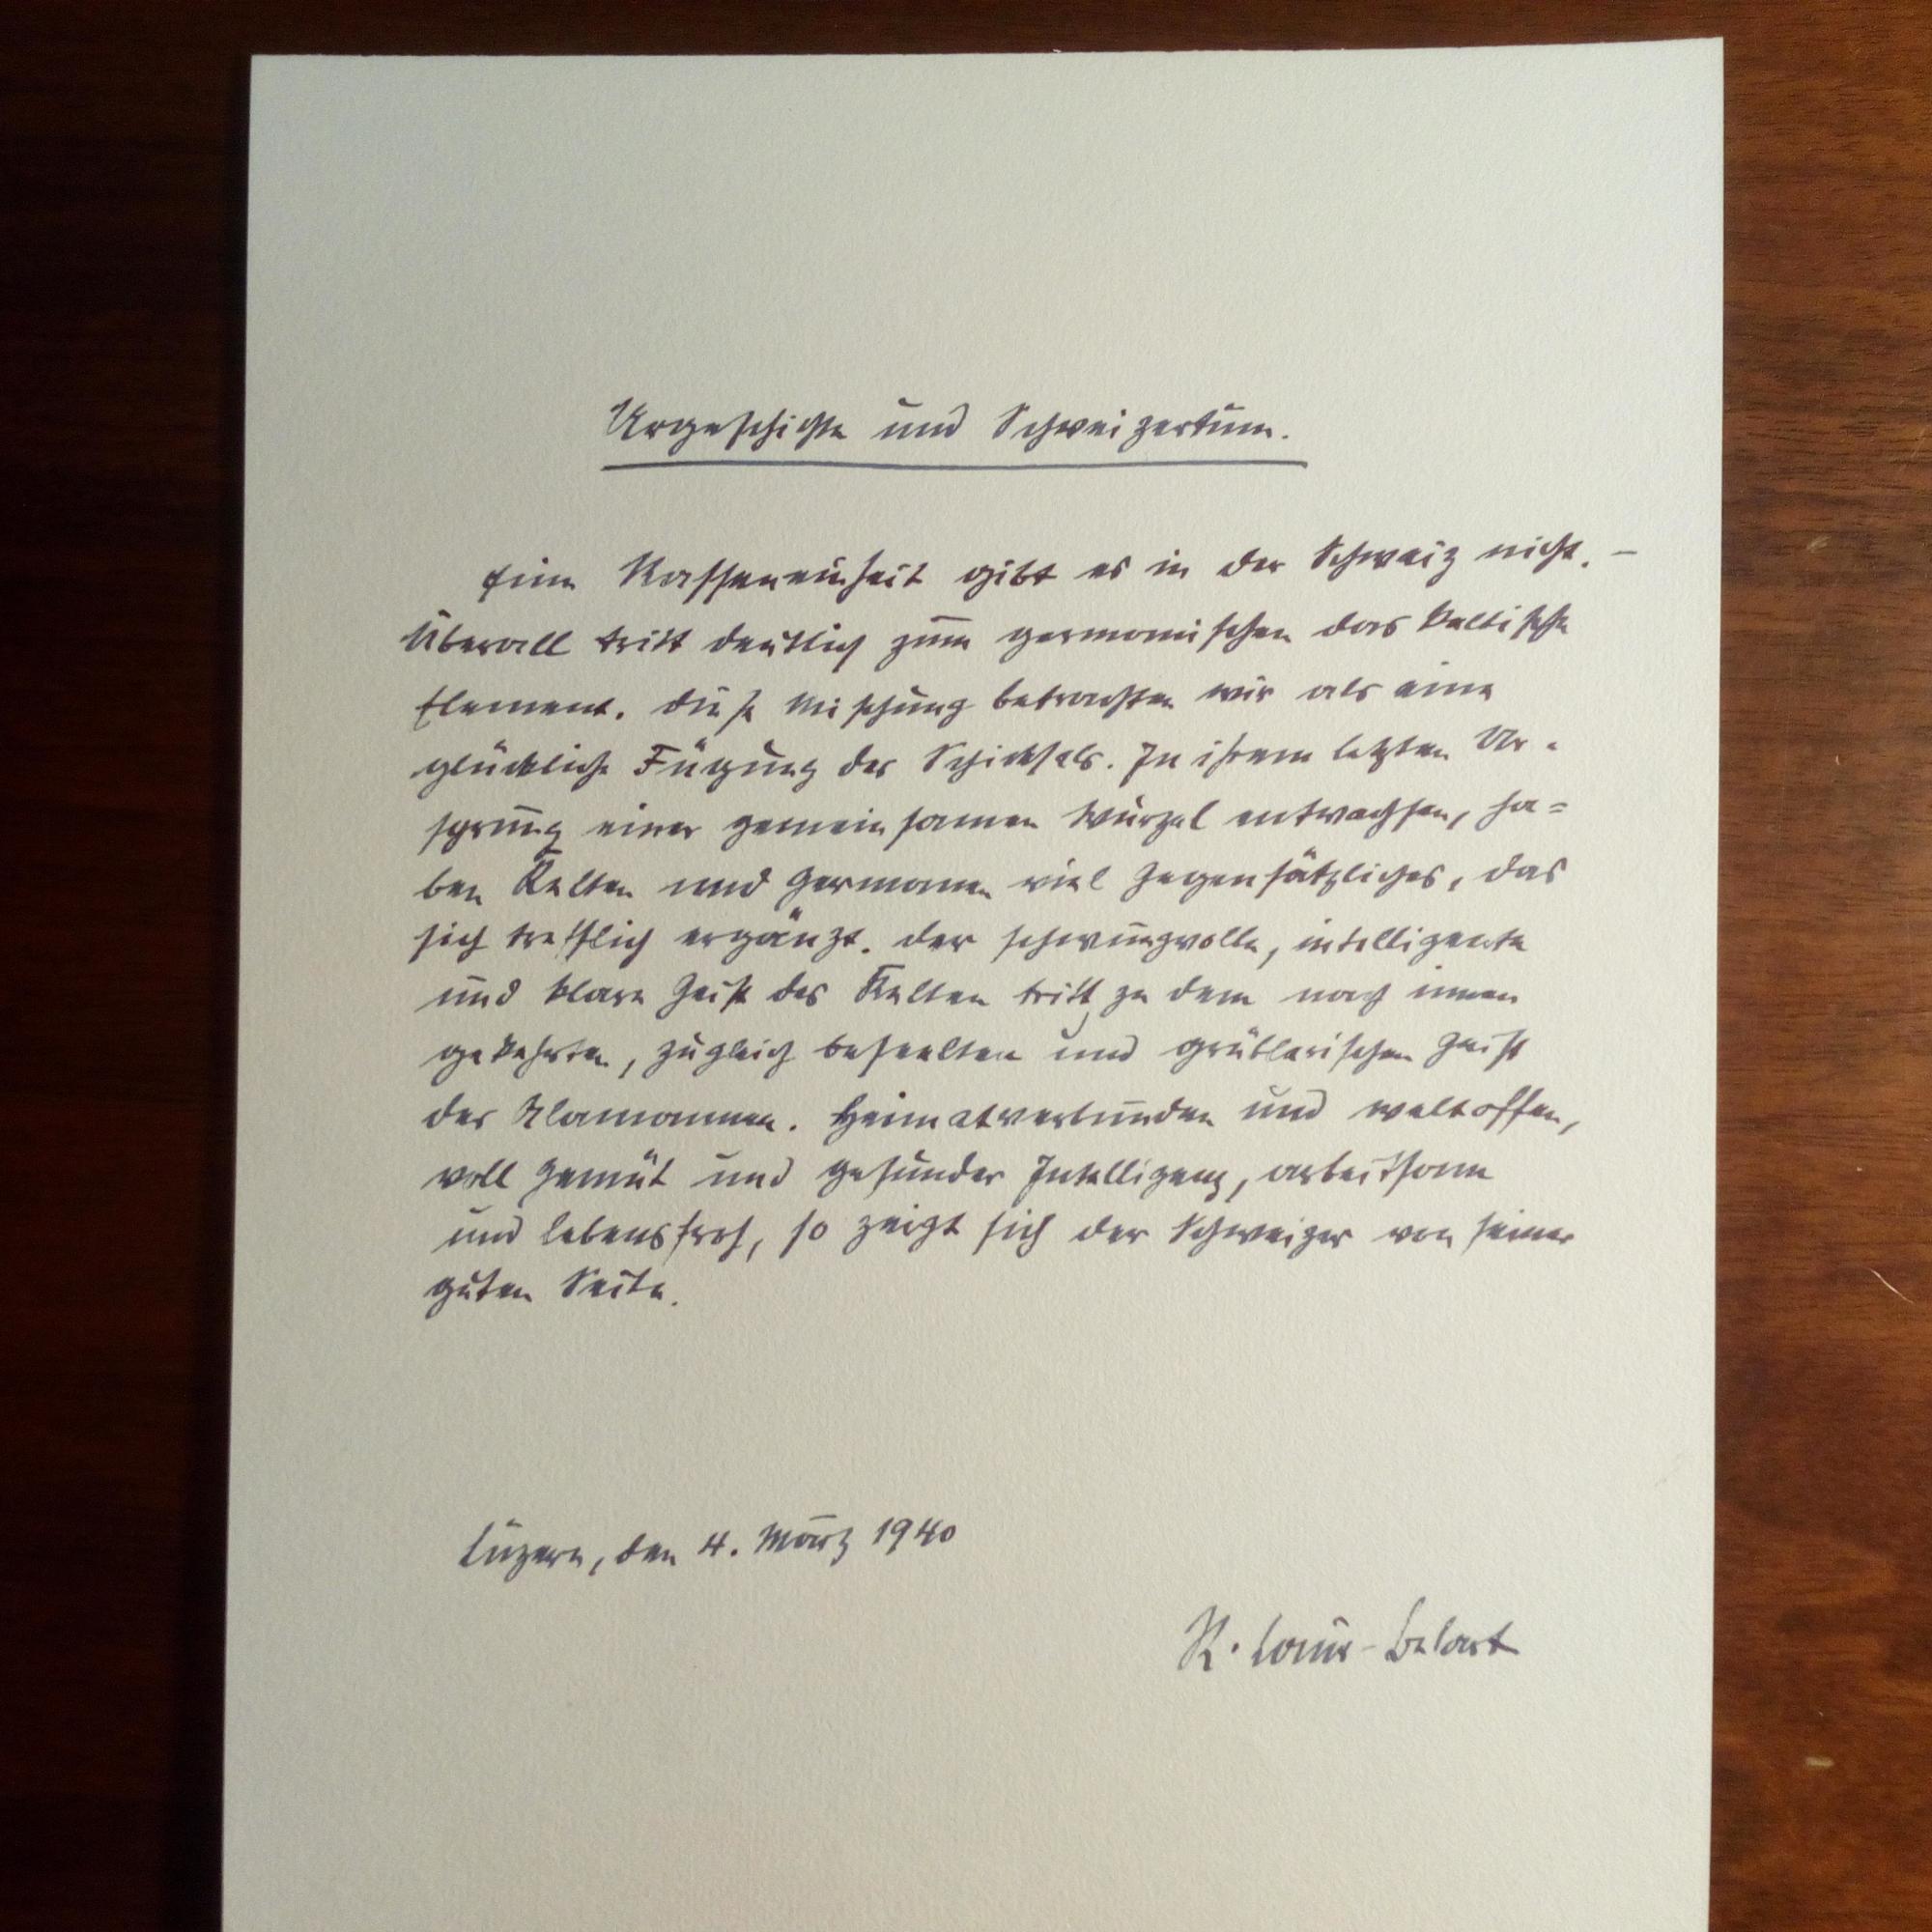 Urgeschichte und Schweizertum.
Eine Rasseneinheit gibt es in der Schweiz nicht. –
Überall tritt deutlich zum germanischen das keltische
Element. Diese Mischung betrachten wir als eine
glückliche Fügung des Schicksals. In ihrem letzten Ur-
sprung einer gemeinsamen Wurzel entwachsen, ha=
ben Kelten und Germanen viel Gegensätzliches, das
sich trefflich ergänzt. Der schwungvolle, intelligente
und klare Geist des Kelten tritt zu dem nach innen
gekehrten, zugleich beseelten und grüblerischen Geist
des Alamannen. Heimatverbunden und weltoffen,
voll Gemüt und gesunder Intelligenz, arbeitsam
und lebensfroh, so zeigt sich der Schweizer von seiner
guten Seite.
Luzern, den 4. März 1940
R. Laur-Belart